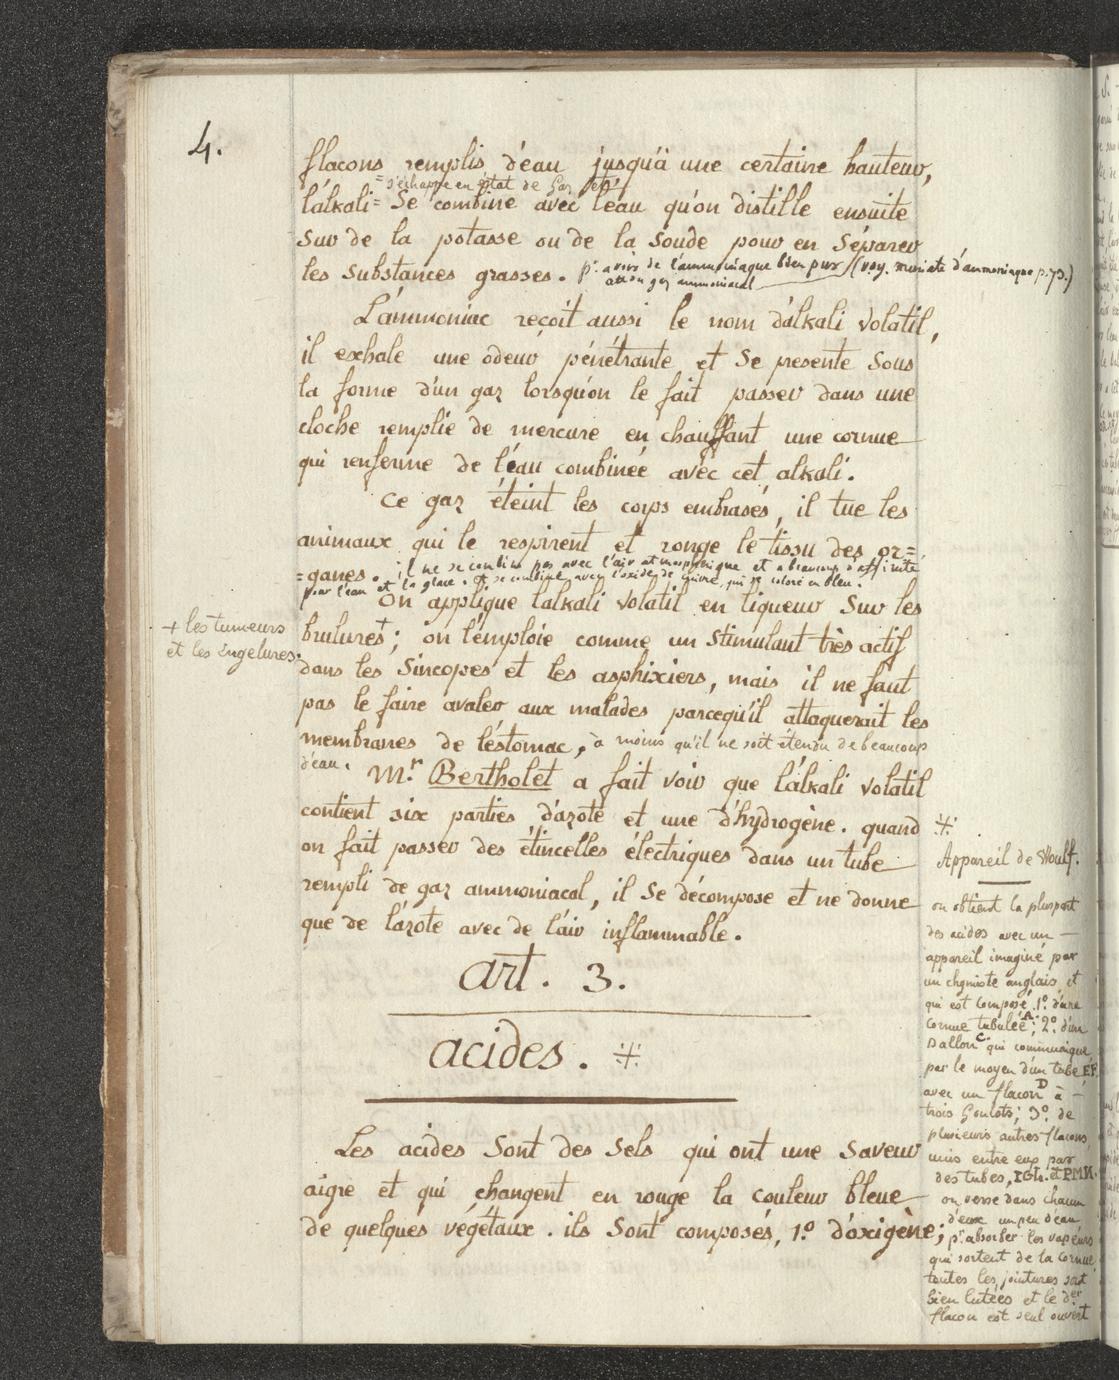 4.
flacons remplis d'eau jusqu'à une certaine hauteur,
= s'échappe en état de Gaz et
l'alkali = Se combine avec l'eau qu'on distille ensuite
sur de la potasse ou de la Soude pour en Séparer
les Substances grasses. pr. avoir de l'ammoniaque bien pur (voy. muriate d'ammoniaque p.73.)
ou gaz ammoniacal
L'ammoniac reçoit aussi le nom d'alkali volatil,
il exhale une odeur pénétrante et Se presente Sous
la forme d'un gaz lorsqu'on le fait passer dans une
cloche remplie de mercure en chauffant une cornue
qui renferme de l'eau combinée avec cet alkali.
Ce gaz éteint les corps embrasés, il tue les
animaux qui le respirent et ronge le tissu des or=
=ganes. il ne se combine pas avec l'air atmosphérique et a beaucoup d'affinité
pour l'eau et la glace. et se combine avec l'oxide de cuivre, qui se colore en bleu.
On applique l'alkali volatil en liqueur Sur les
brulures+; on l'emploie comme un Stimulant très actif
+ les tumeurs
et les Engelures.
dans les Sincopes et les asphixiers, mais il ne faut
pas le faire avaler aux malades parcequ'il attaquerait les
membranes de l'estomac, à moins qu'il ne soit étendu de beaucoup
d'eau.
Mr. Bertholet a fait voir que l'alkali volatil
contient six parties d'azote et une d'hydrogène. quand
on fait passer des étincelles électriques dans un tube
rempli de gaz ammoniacal, il Se décompose et ne donne
que de l'azote avec de l'air inflammable.
art. 3.
acides. ⁜
Les acides Sont des Sels qui ont une Saveur
aigre et qui changent en rouge la couleur bleue
de quelques végétaux. ils Sont composés, 1.º d'oxigène;
⁜
Appareil de Woulf.
on obtient la pluspart
des acides avec un
appareil imaginé par
un chymiste anglais, et
qui est composé 1.º d'une
Cornue tubulée A; 2.º d'un
Ballon C qui communique
par le moyen d'un tube EF
avec un flacon D à
trois Goulots; 3.º de
plusieurs autres flacons
unis entre eux par
des tubes, IGh. et PMN.
on verse dans chacun
d'eux un peu d'eau
pr. absorber les vapeurs
qui sortent de la cornue,
toutes les jointures sont
bien lutées et le der.
flacon est seul ouvert